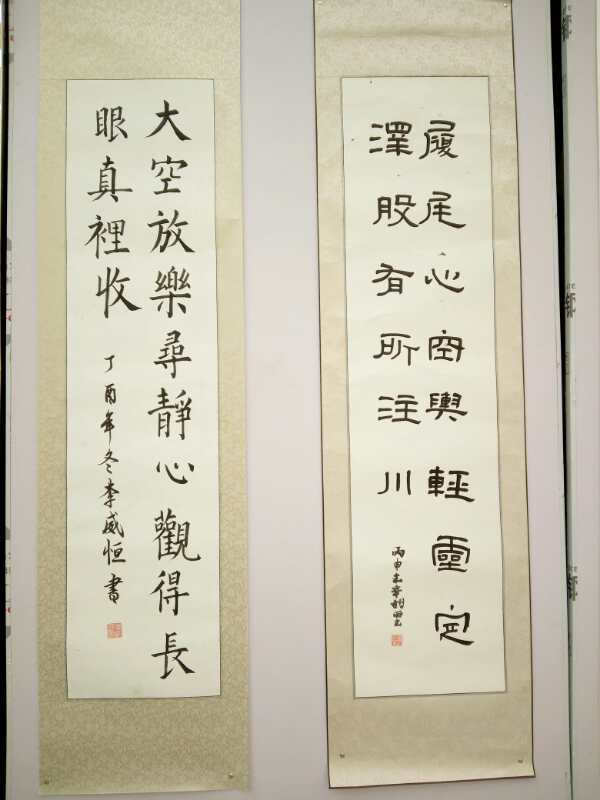 履尾心空與輕靈定
澤股有所注川
丙申
大空放樂尋靜心觀得長
眼真裡收
丁酉年冬李威恒書